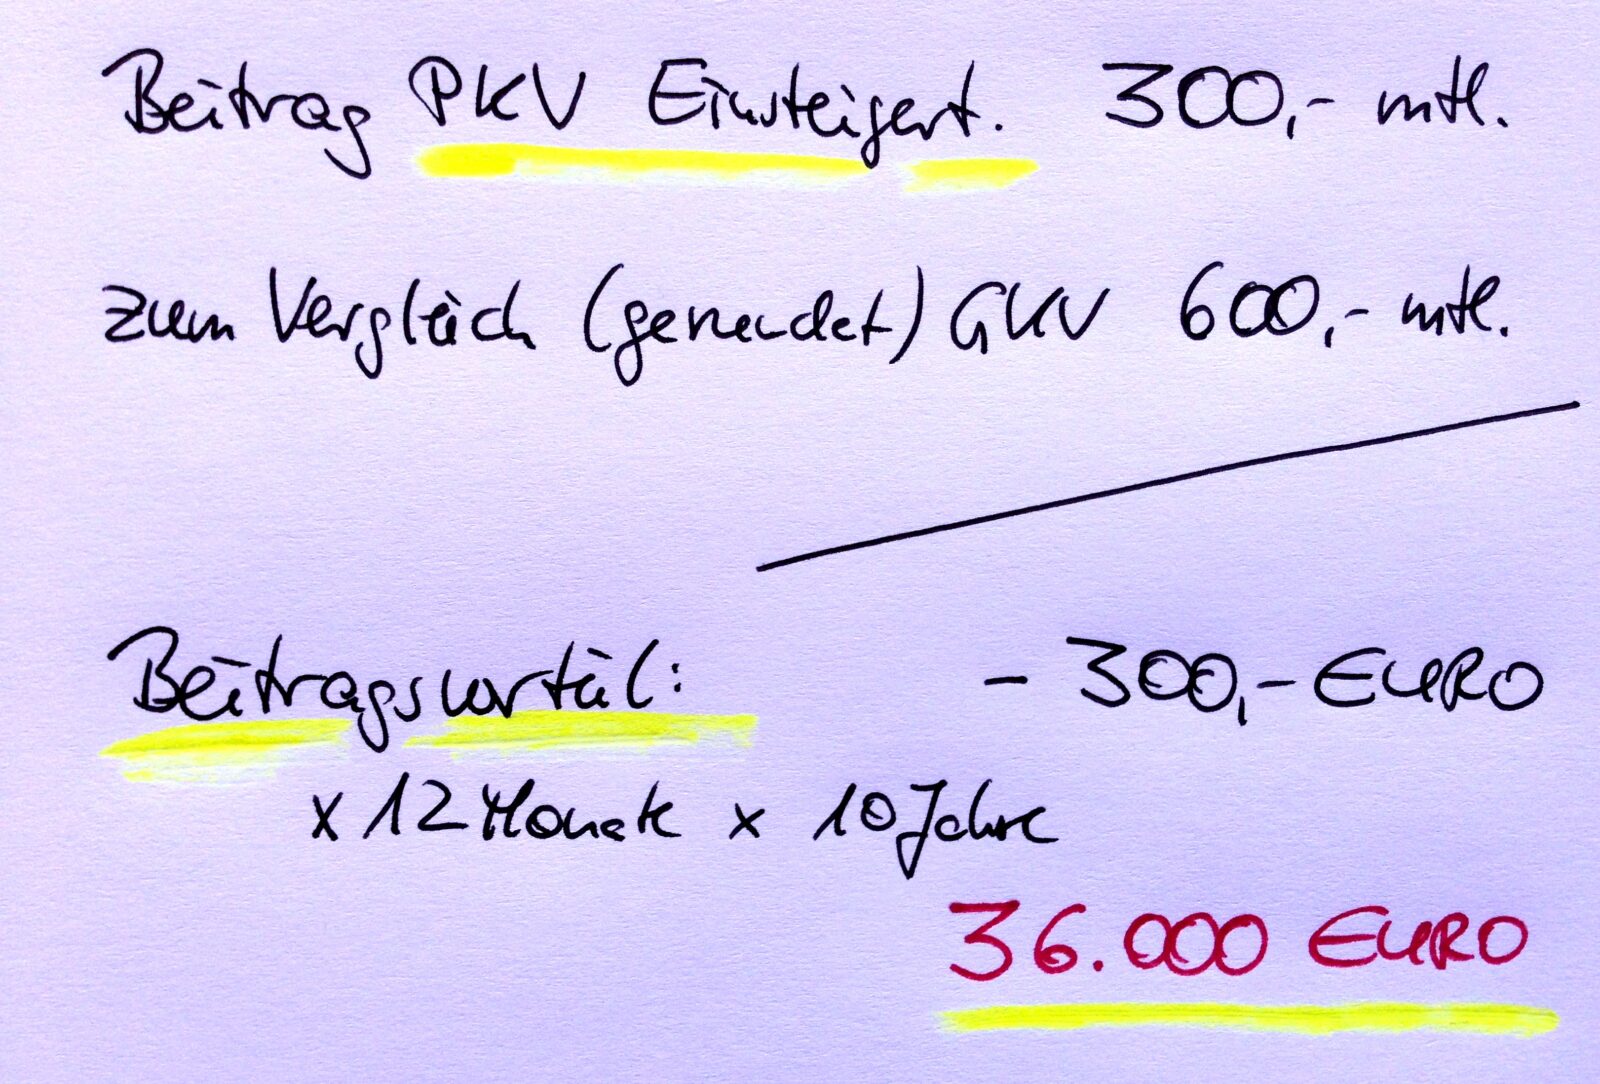 Beitrag PKV Einsteigert. 300,- mtl.
zum Vergleich (gerundet) GKV 600,- mtl.
Beitragsvorteil: - 300,- EURO
x 12 Monate x 10 Jahre
36.000 EURO